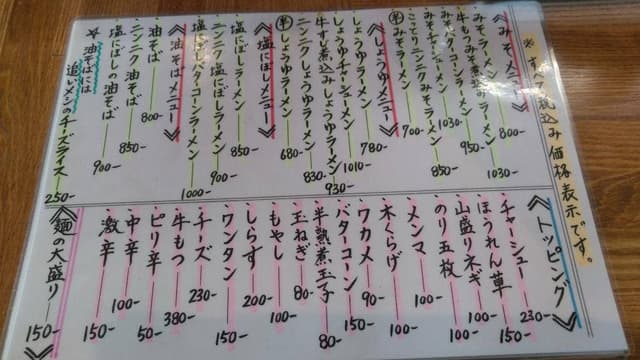 ※すべて税込み価格表示です。
《みそメニュー》
・みそラーメン 800-
・牛もつみそ煮のラーメン 1030-
・みそバターコーンラーメン 950-
・みそチャーシューメン 1030-
・こってりニンニクみそラーメン 850-
半 みそラーメン 700-
《しょうゆメニュー》
・しょうゆラーメン 780-
・しょうゆチャーシューメン 1010-
・牛すじ煮込みしょうゆラーメン 930-
・ニンニクしょうゆラーメン 830-
半 しょうゆラーメン 680-
《塩にぼしメニュー》
・塩にぼしラーメン 850-
・ニンニク塩にぼしラーメン 900-
・塩にぼしバターコーンラーメン 1000-
《油そばメニュー》
・油そば 800-
・ニンニク油そば 850-
・塩にぼしの油そば 900-
☆油そばには
追いメシのチーズライス 250-
《トッピング》
・チャーシュー 230-
・ほうれん草 150-
・山盛りネギ 100-
・のり五枚 100-
・メンマ 100-
・木くらげ 100-
・ワカメ 90-
・バターコーン 150-
・半熟煮玉子 80-
・玉ねぎ 80-
・もやし 100-
・しらす 200-
・ワンタン 150-
・チーズ 230-
・牛もつ 380-
・ピリ辛 50-
・中辛 100-
・激辛 150-
《麺の大盛り 150-》